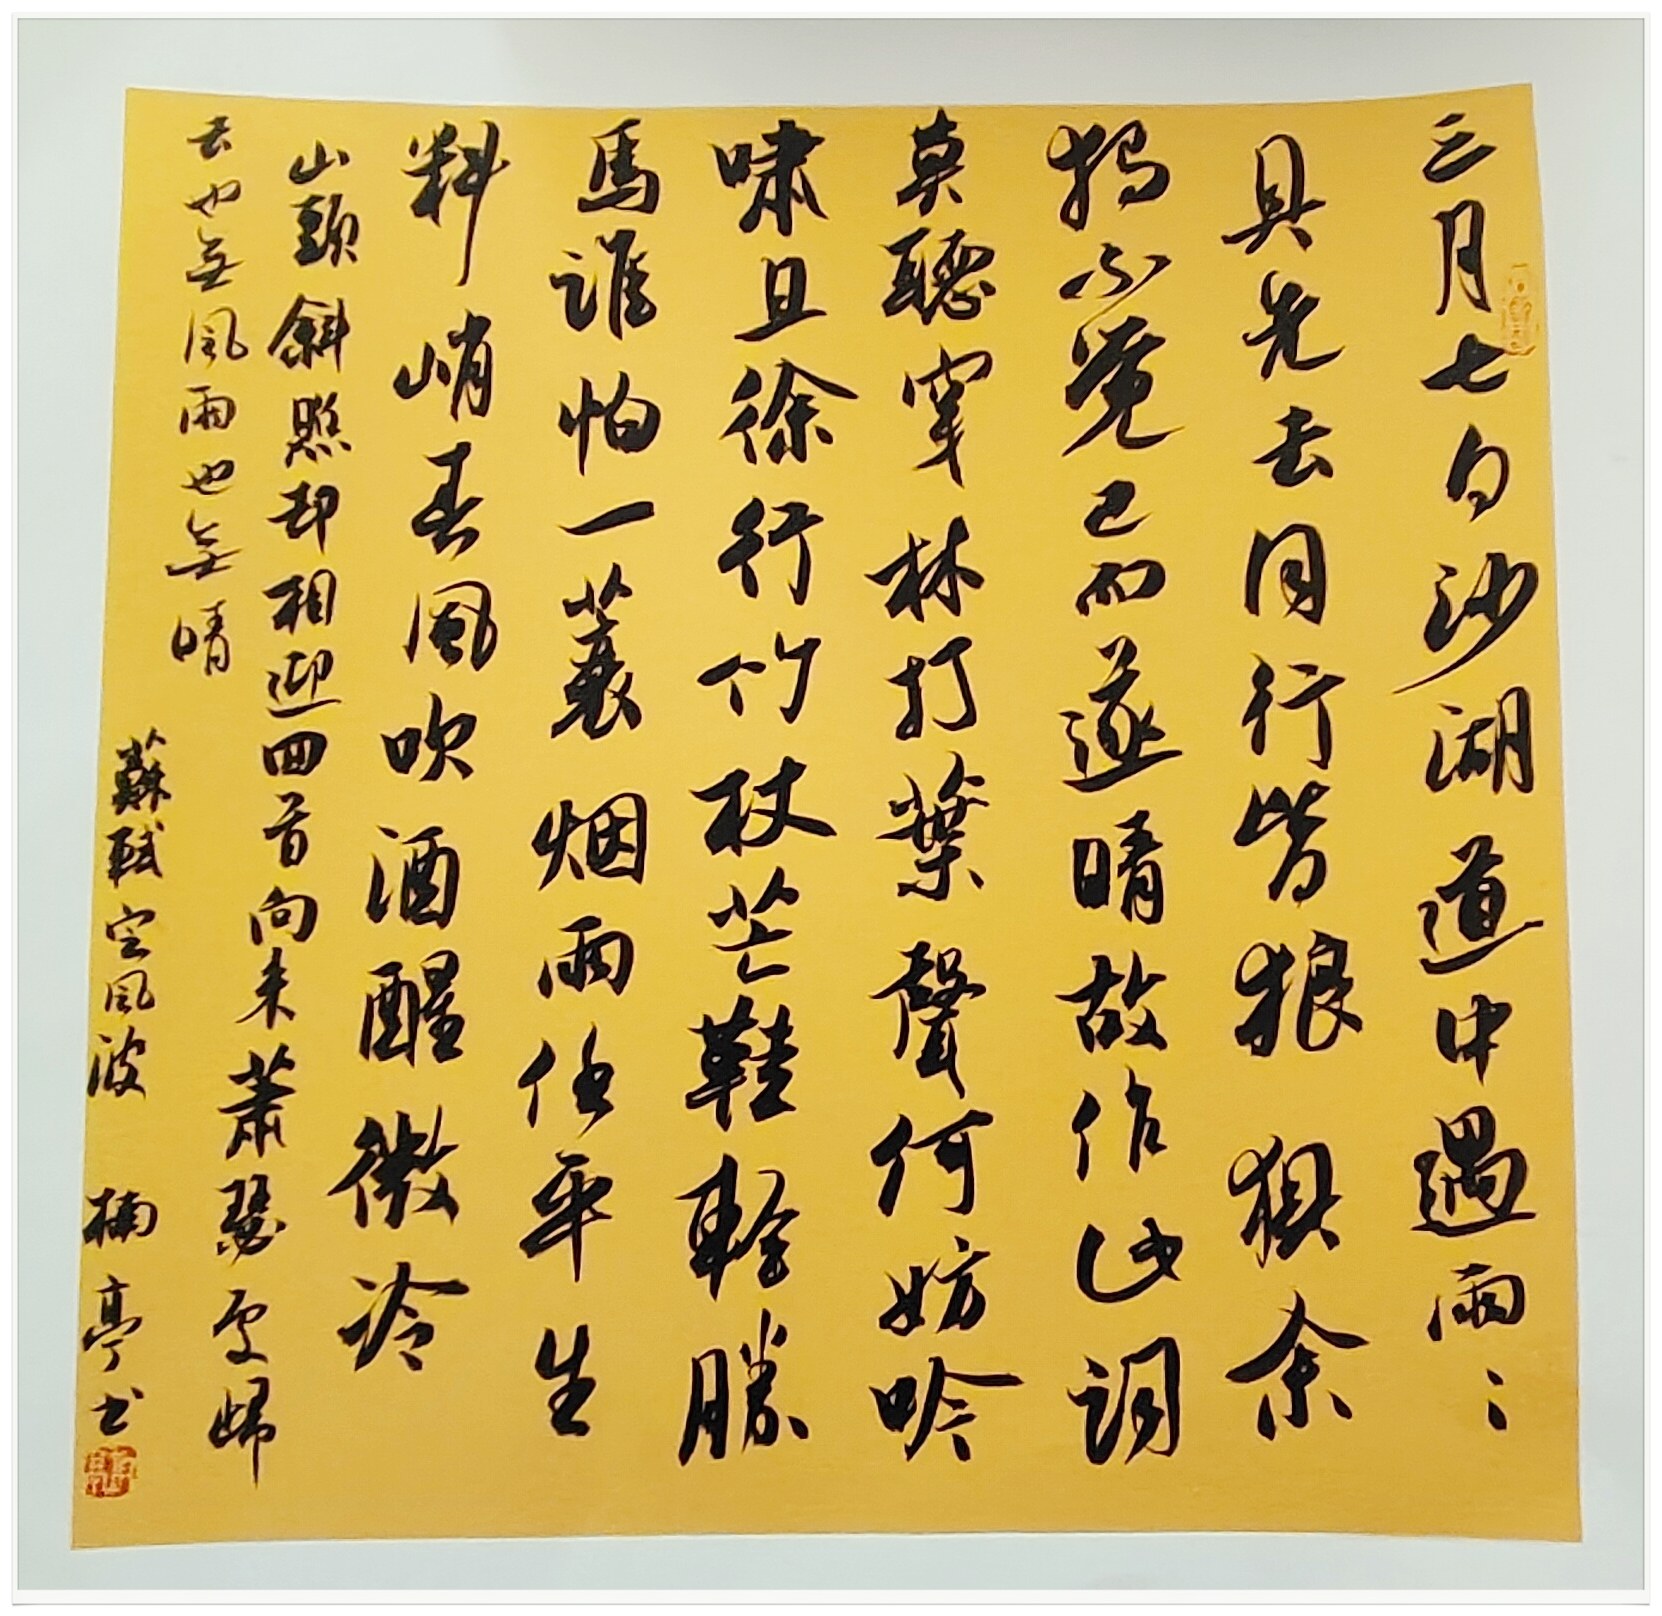 三月七日沙湖道中遇雨：
具先去同行皆狼狽余
獨不覺已而遂晴故作此詞
莫聽穿林打葉聲何妨吟
嘯且徐行竹杖芒鞋輕勝
馬誰怕一蓑烟雨任平生
料峭春風吹酒醒微冷
山頭斜照却相迎回首向来蕭瑟處歸
去也無風雨也無晴
蘇軾定風波 楠亭书